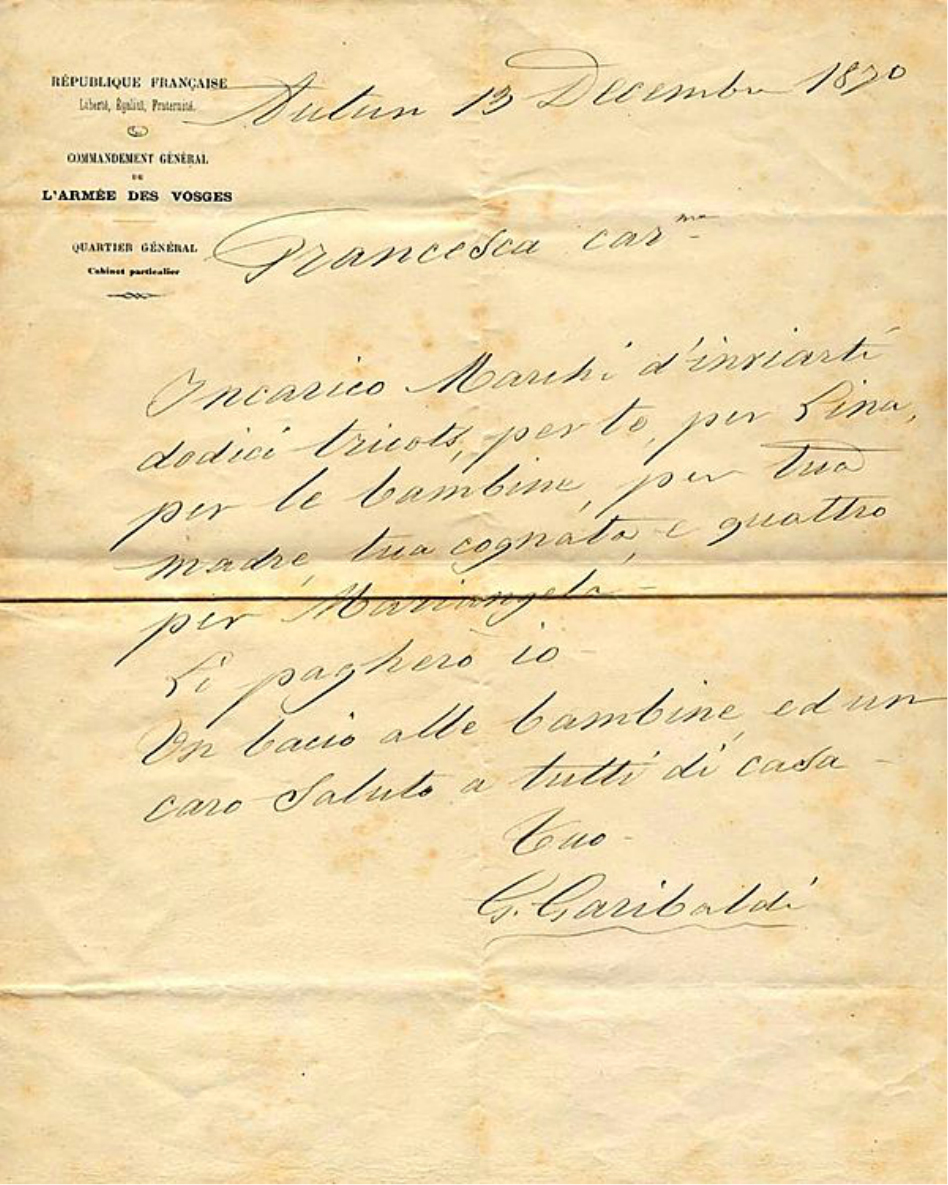 RÉPUBLIQUE FRANÇAISE
Liberté, Égalité, Fraternité.
COMMANDEMENT GÉNÉRAL
DE
L'ARMÉE DES VOSGES
QUARTIER GÉNÉRAL
Cabinet particulier
Autun 13 Decembre 1870
Francesca car.ma
Incarico Marchi d'inviarti
dodici tricots, per te, per Lina,
per le bambine, per tua
madre, tua cognata e quattro
per Mariangela -
Li pagherò io -
Un bacio alle bambine, ed un
caro Saluto a tutti di casa -
Tuo -
G. Garibaldi